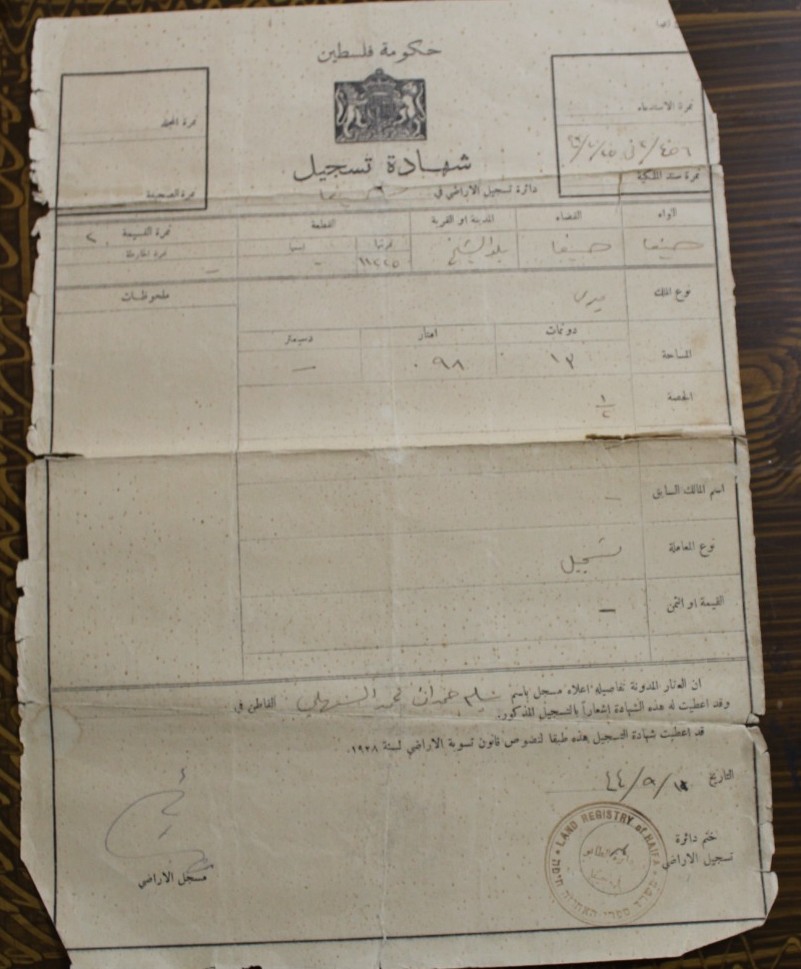 حكومة فلسطين
شهادة تسجيل
دائرة تسجيل الاراضي في حيفا
نمرة الاستدعاء
نمرة سند الملكية
نمرة المجلد
نمرة الصحيفة
اللواء القضاء المدينة او القرية القطعة نمرة القسيمة ٢
حيفا حيفا بلد الشيخ نمرتها ١١٢٢٥ اسمها – نمرة الخارطة –
نوع الملك ميري ملحوظات
دونمات امتار دسيمتر
المساحة ١٣ ٠٩٨ –
الحصة ١/٢
اسم المالك السابق –
نوع المعاملة تسجيل
القيمة او الثمن –
ان العقار المدونة تفاصيله اعلاه مسجل باسم حمدان محمد السهلي القاطن في
وقد اعطيت له هذه الشهادة إشعاراً بالتسجيل المذكور.
قد اعطيت شهادة التسجيل هذه طبقا لنصوص قانون تسوية الاراضي لسنة ١٩٢٨.
التاريخ
ختم دائرة
تسجيل الاراضي
مسجل الاراضي
LAND REGISTRY of HAIFA